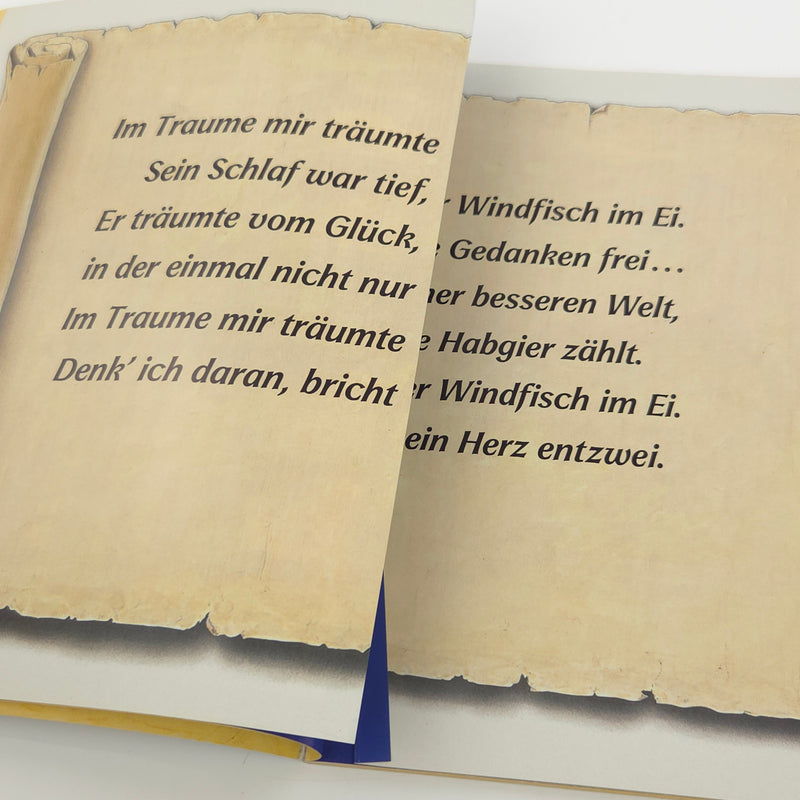 Im Traume mir träumte
Sein Schlaf war tief,
Er träumte vom Glück,
in der einmal nicht nur
Im Traume mir träumte
Denk’ ich daran, bricht
Windfisch im Ei.
Gedanken frei...
besseren Welt,
Habgier zählt.
Windfisch im Ei.
ein Herz entzwei.